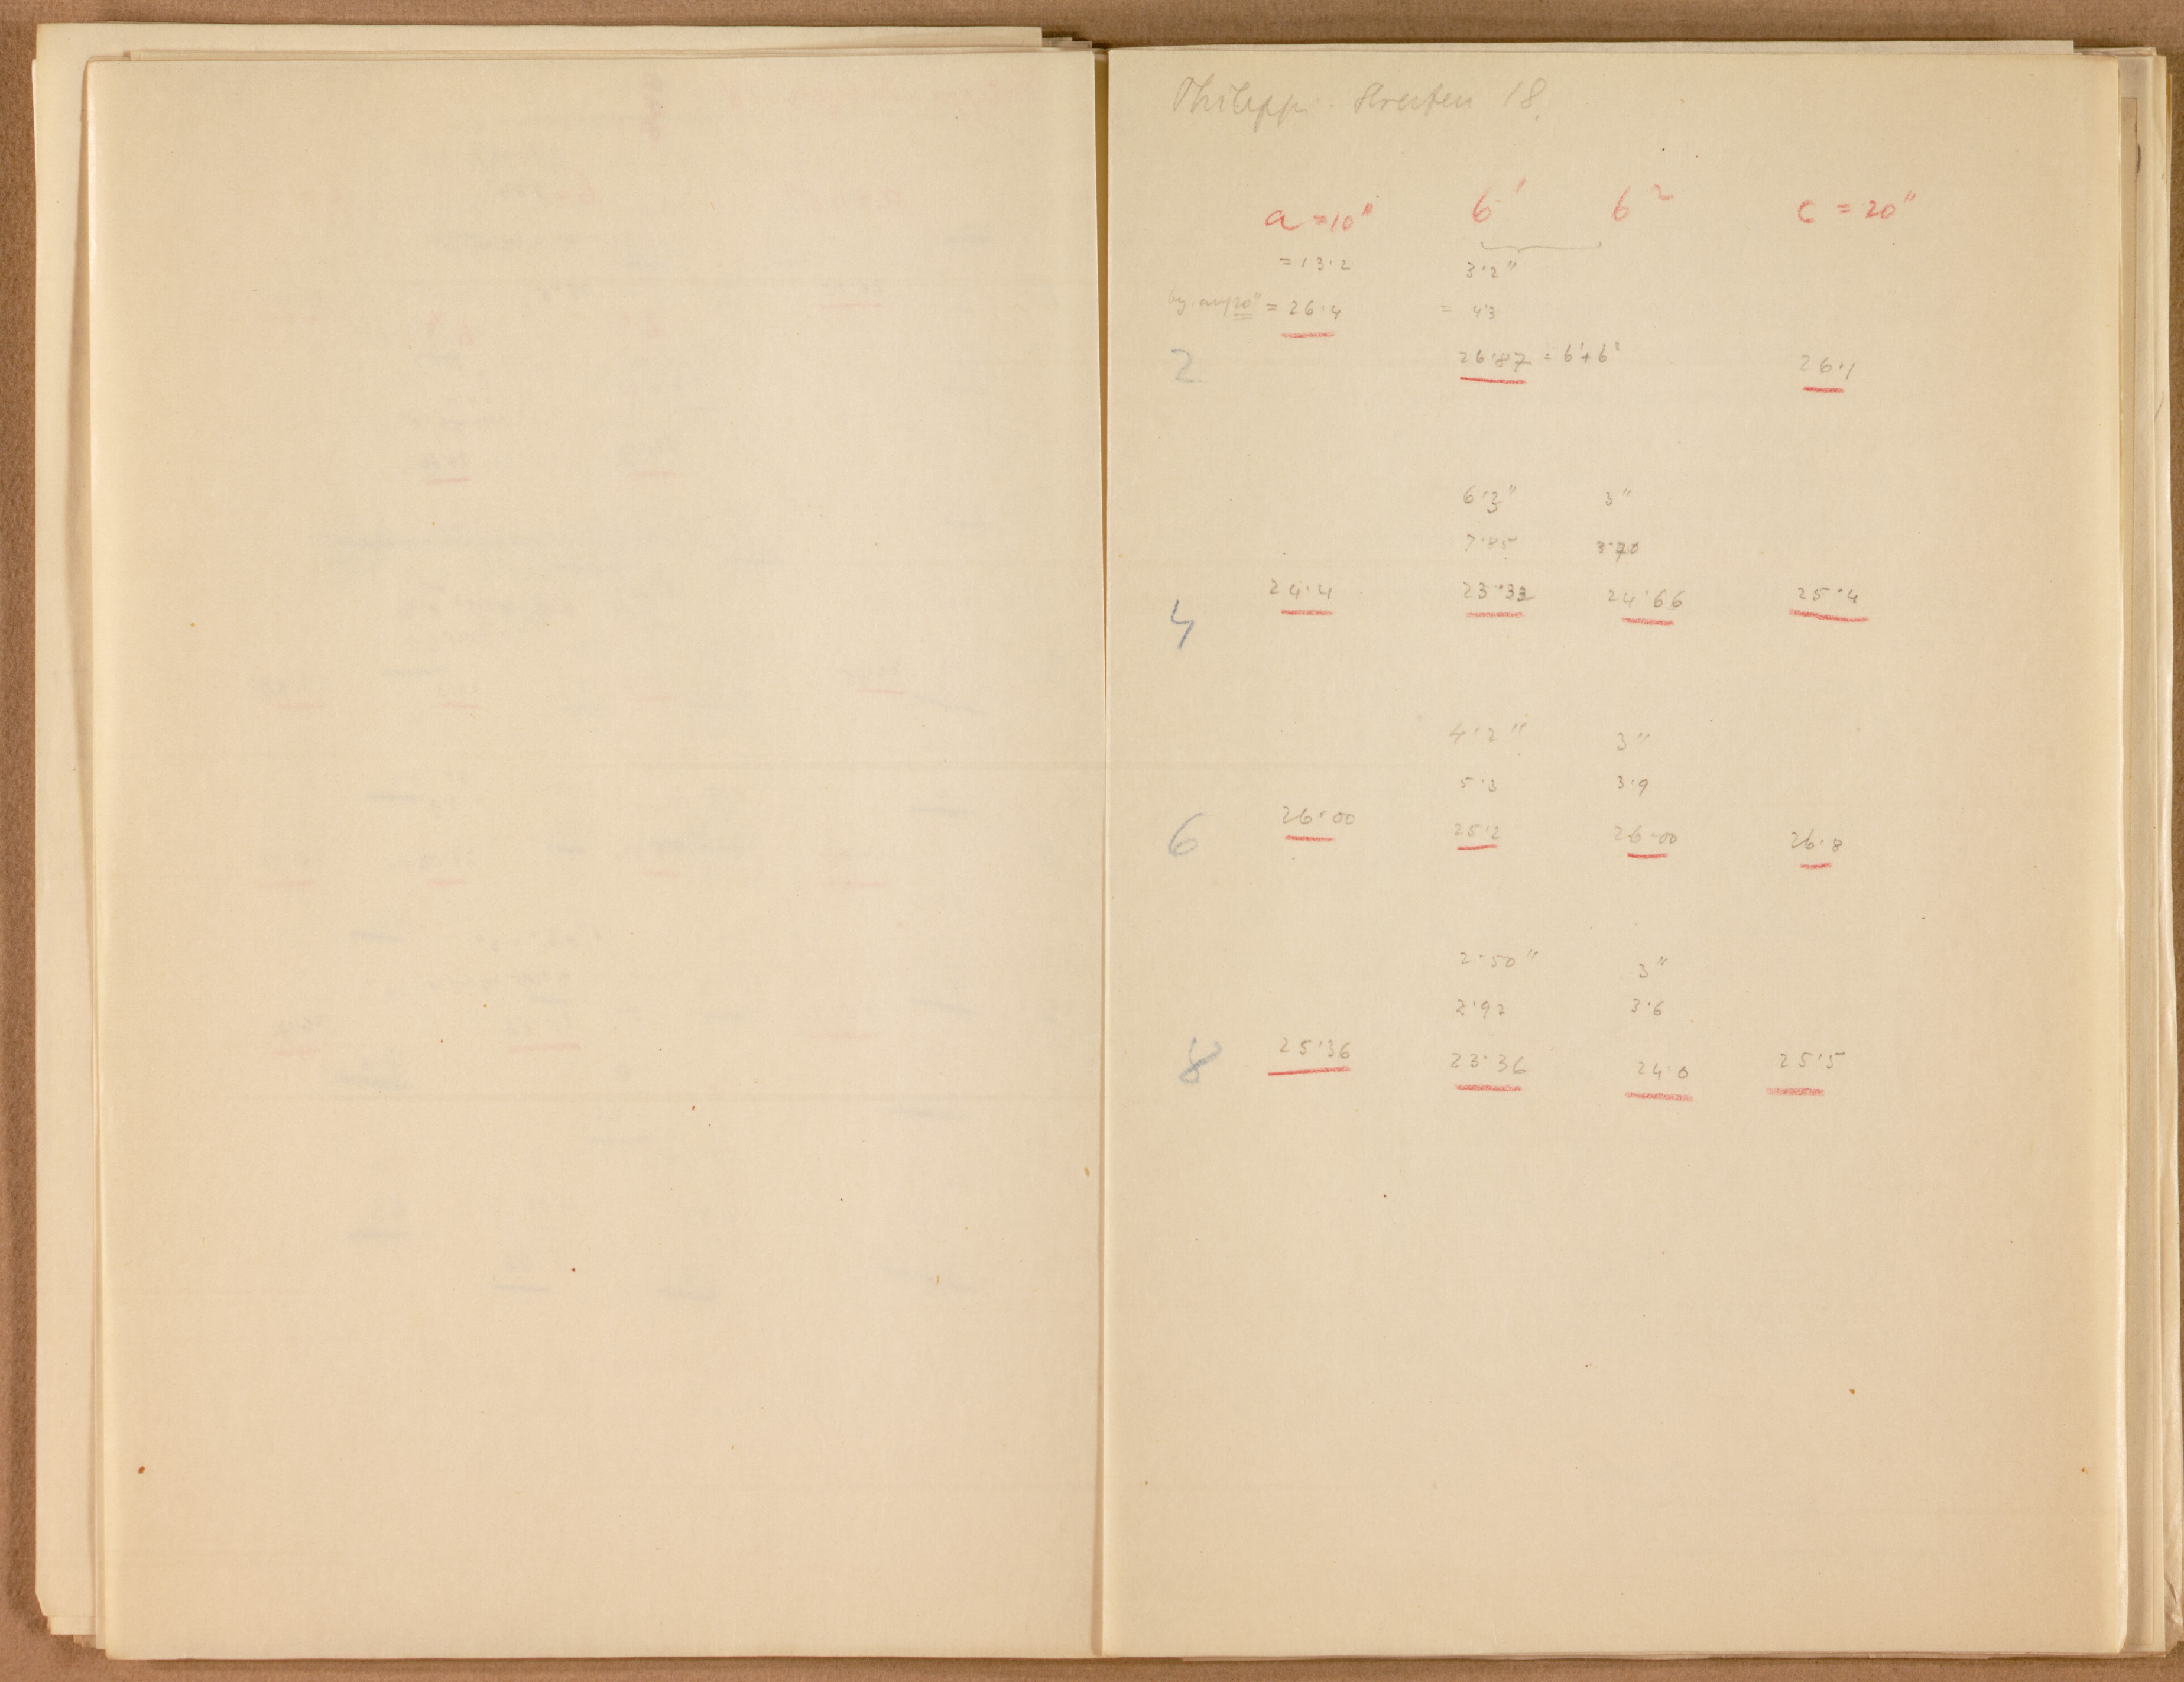 Philipp. Streifen 18.
a = 10" b¹ b² c = 20"
= 13·2 3·2"
auf 20" = 26·4 = 4·3
2 26·87 = b¹ + b² 26·1
6·3" 3"
7·85 3·70
4 24·4 23·33 24·66 25·4
4·2" 3"
5·3 3·9
6 26·00 25·2 26·00 26·8
2·50" 3"
2·92 3·6
8 25·36 23·36 24·0 25·5